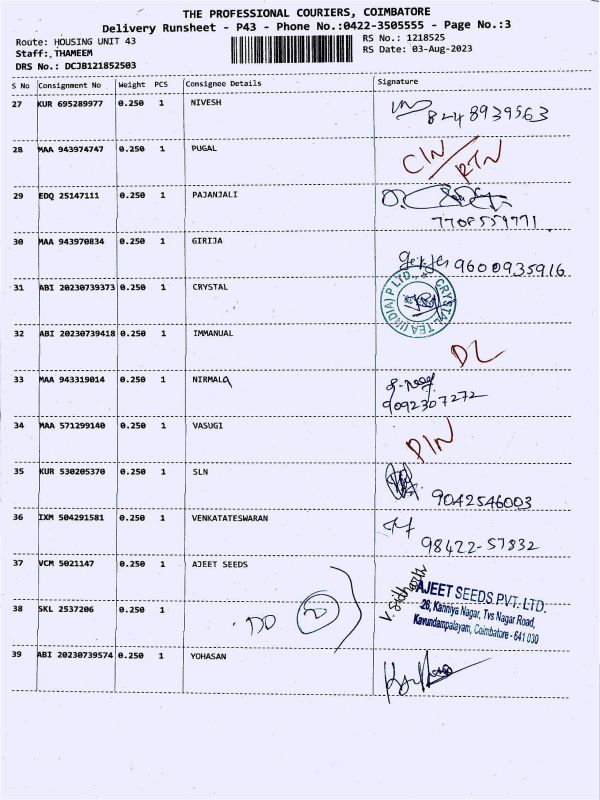 THE PROFESSIONAL COURIERS, COIMBATORE
Delivery Runsheet - P43 - Phone No.:0422-3505555 - Page No.:3
Route: HOUSING UNIT 43 RS No.: 1218525
Staff:,THAMEEM RS Date: 03-Aug-2023
DRS No.: DCJB121852503
S No Consignment No Weight PCS Consignee Details Signature
27 KUR 695289977 0.250 1 NIVESH
8248939563
28 MAA 943974747 0.250 1 PUGAL CIN/RTN
29 EDQ 25147111 0.250 1 PAJANJALI
7708559771
30 MAA 943970834 0.250 1 GIRIJA
9600935916
31 ABI 20230739373 0.250 1 CRYSTAL CRYSTAL TEA (INDIA) P LTD.
32 ABI 20230739418 0.250 1 IMMANUAL DL
33 MAA 943319014 0.250 1 NIRMALA
9092307272
34 MAA 571299140 0.250 1 VASUGI PIN
35 KUR 530205370 0.250 1 SLN
9042546003
36 IXM 504291581 0.250 1 VENKATATESWARAN
98422-57832
37 VCM 5021147 0.250 1 AJEET SEEDS V. Sidharth
AJEET SEEDS PVT. LTD.
26, Kanniya Nagar, Tvs Nagar Road,
Kavundampalayam, Coimbatore - 641 030
38 SKL 2537206 0.250 1 DO 2
39 ABI 20230739574 0.250 1 YOHASAN